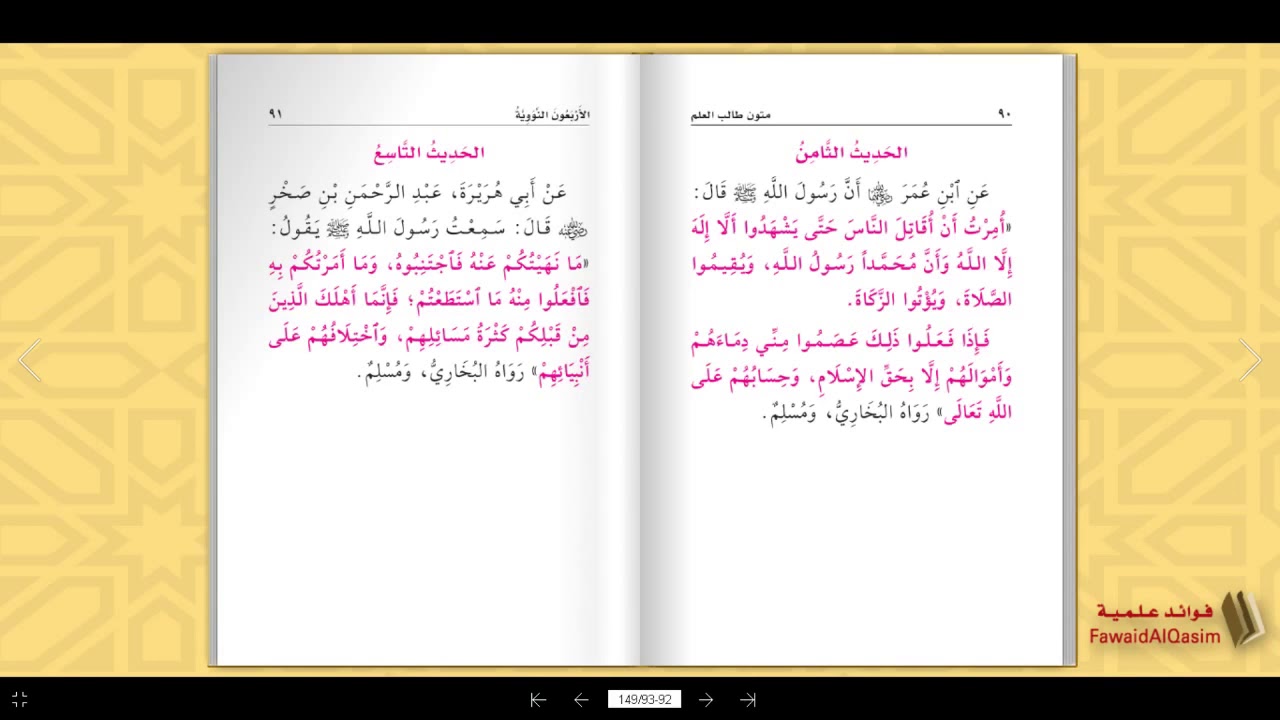 ٩٠ متون طالب العلم
الحَدِيثُ الثَّامِنُ
عَنِ ٱبْنِ عُمَرَ ﵄ أَنَّ رَسُولَ اللَّهِ ﷺ قَالَ:
«أُمِرْتُ أَنْ أُقَاتِلَ النَّاسَ حَتَّى يَشْهَدُوا أَلَّا إِلَهَ
إِلَّا اللَّهُ وَأَنَّ مُحَمَّداً رَسُولُ اللَّهِ، وَيُقِيمُوا
الصَّلَاةَ، وَيُؤْتُوا الزَّكَاةَ.
فَإِذَا فَعَلُوا ذَلِكَ عَصَمُوا مِنِّي دِمَاءَهُمْ
وَأَمْوَالَهُمْ إِلَّا بِحَقِّ الإِسْلَامِ، وَحِسَابُهُمْ عَلَى
اللَّهِ تَعَالَى» رَوَاهُ البُخَارِيُّ، وَمُسْلِمٌ.
الأَرْبَعُونَ النَّوَوِيَّةُ ٩١
الحَدِيثُ التَّاسِعُ
عَنْ أَبِي هُرَيْرَةَ، عَبْدِ الرَّحْمَنِ بْنِ صَخْرٍ
﵁ قَالَ: سَمِعْتُ رَسُولَ اللَّهِ ﷺ يَقُولُ:
«مَا نَهَيْتُكُمْ عَنْهُ فَٱجْتَنِبُوهُ، وَمَا أَمَرْتُكُمْ بِهِ
فَٱفْعَلُوا مِنْهُ مَا ٱسْتَطَعْتُمْ؛ فَإِنَّمَا أَهْلَكَ الَّذِينَ
مِنْ قَبْلِكُمْ كَثْرَةُ مَسَائِلِهِمْ، وَٱخْتِلَافُهُمْ عَلَى
أَنْبِيَائِهِمْ» رَوَاهُ البُخَارِيُّ، وَمُسْلِمٌ.
فوائد علمية
FawaidAlQasim
149/93-92